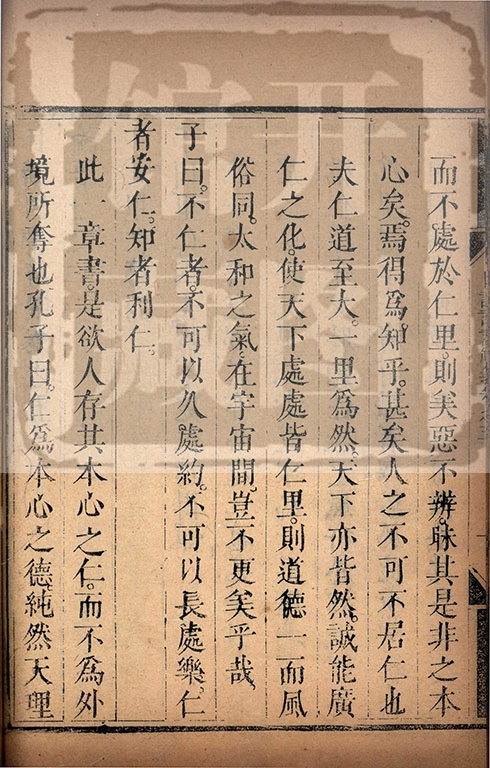 而不處於仁里。則美惡不辨。昧其是非之本
心矣。焉得爲知乎。甚矣人之不可不居仁也
夫仁道至大。一里爲然。天下亦皆然。誠能廣
仁之化。使天下處處皆仁里。則道德一而風
俗同。太和之氣。在宇宙間。豈不更美乎哉。
子曰。不仁者。不可以久處約。不可以長處樂。仁
者安仁。知者利仁。
此一章書。是欲人存其本心之仁。而不爲外
境所奪也孔子曰。仁爲本心之德。純然天理